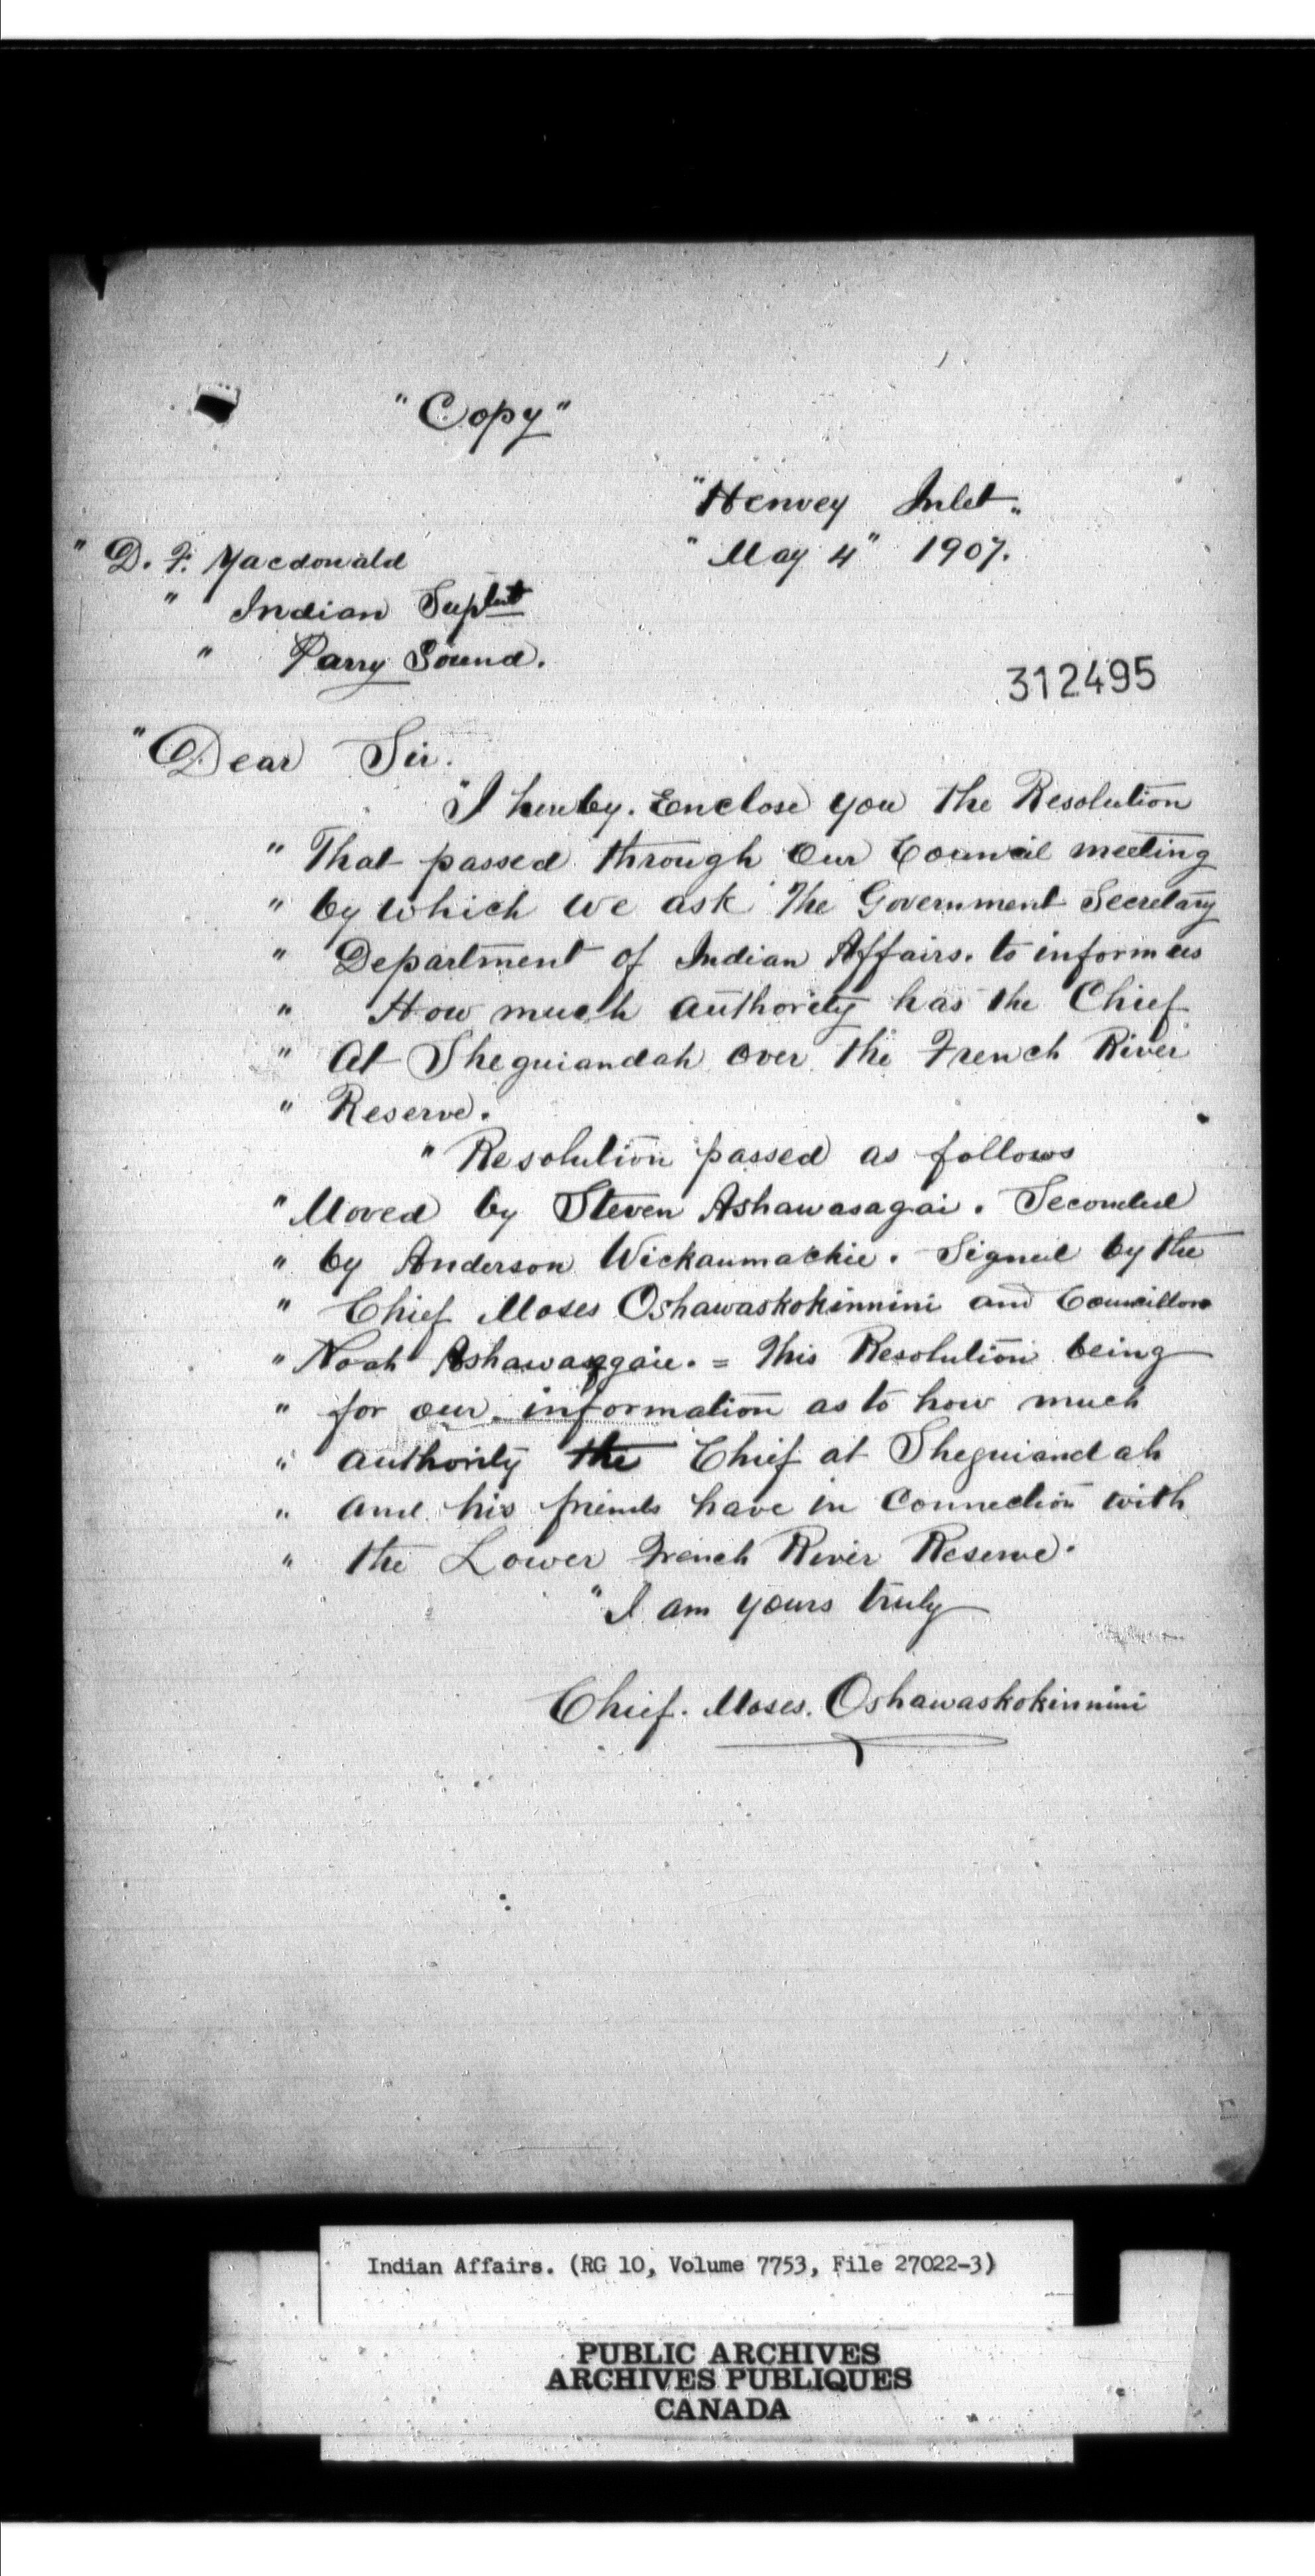 "Copy"
"Henvey Inlet"
"May 4" 1907.
"D. F. Macdonald
" Indian Supt
" Parry Sound.
312495
"Dear Sir.
"I hereby. Enclose you the Resolution
" That passed through Our Council meeting
" by which we ask the Government Secretary
" Department of Indian Affairs. to inform us
" How much authority has the Chief
" At Sheguiandah over the French River
" Reserve.
" Resolution passed as follows
" Moved by Steven Ashawasagai. Seconded
" by Anderson Wickaumackie. Signed by the
" Chief Moses Oshawaskokinnini and Councillors
" Noah . = This Resolution being
" for our information as to how much
" authority the Chief at Sheguiandah
" and his friends have in Connection with
" the Lower French River Reserve.
"I am yours truly
Chief. Moses. Oshawaskokinnini
Indian Affairs. (RG 10, Volume 7753, File 27022-3)
PUBLIC ARCHIVES
ARCHIVES PUBLIQUES
CANADA